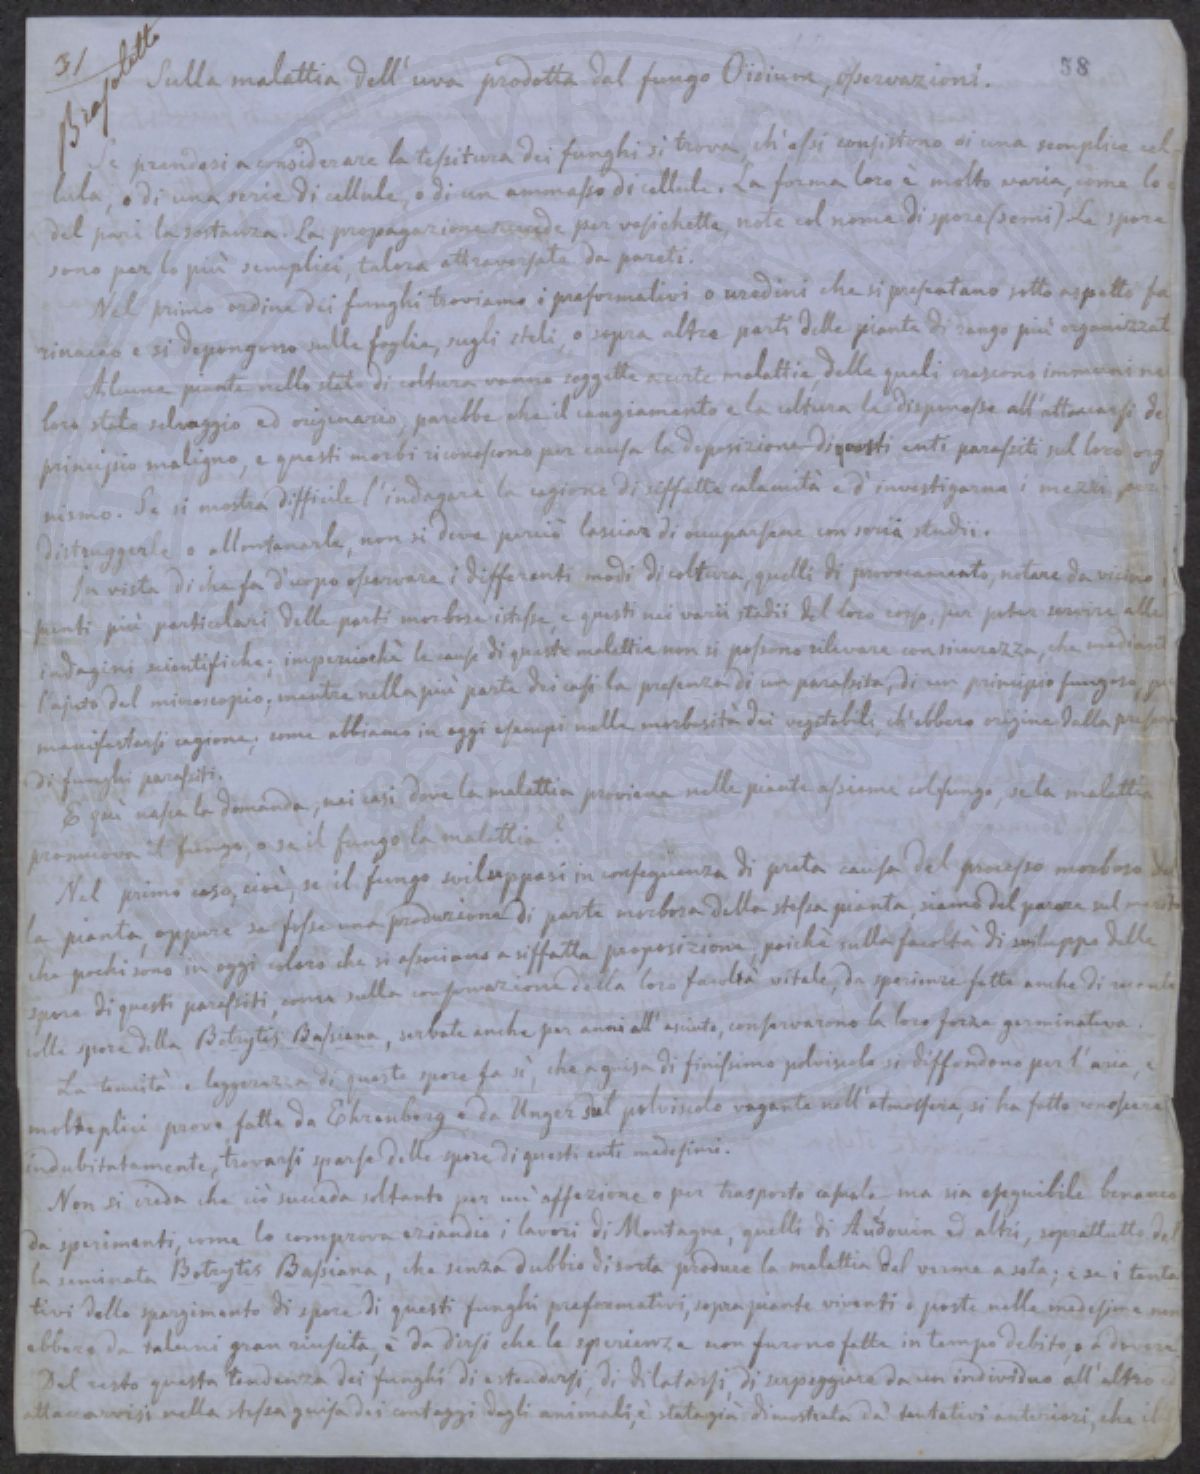 31
Brasoletto
58
Sulla malattia dell'uva prodotta dal fungo Oidium, osservazioni.
Se prendesi a considerare la tessitura dei funghi si trova, ch'essi consistono di una semplice cel-
lula, o di una serie di cellule, o di un ammasso di cellule. La forma loro è molto varia, come lo è
del pari la sostanza. La propagazione succede per vesichette, note col nome di spore (semi). Le spore
sono per lo più semplici, talora attraversate da pareti.
Nel primo ordine dei funghi troviamo i preformativi o uredini che si presentano sotto aspetto fa
rinaceo e si depongono sulle foglie, sugli steli, o sopra altre parti delle piante di rango più organizzat
Alcune piante nello stato di coltura vanno soggette a certe malattie, delle quali crescono immuni ne
loro stato selvaggio ed originario, parebbe che il cangiamento e la coltura le disponesse all'attaccarsi de
principio maligno, e questi morbi riconoscono per causa la deposizione di questi enti parassiti sul loro org
nismo. Se si mostra difficile l'indagare la cagione di siffatte calamità e d'investigarne i mezzi per
distruggerle o allontanarle, non si deve perciò lasciar di occuparsene con serii studii.
In vista di che fa d'uopo osservare i differenti modi di coltura, quelli di provocamento, notare da vicino i
punti più particolari delle parti morbose istesse, e questi nei varii stadii del loro corso, per poter servire alle
indagini scientifiche; imperciochè le cause di queste malattie non si possono rilevare con sicurezza, che mediant
l'ajuto del microscopio; mentre nella più parte dei casi la presenza di un parassita, di un principio fungoso, può
manifestarsi cagione; come abbiamo in oggi esempi nelle morbosità dei vegetabili, ch'ebbero origine dalla presen
di funghi parassiti.
E quì nasce la domanda, nei casi dove la malattia proviene nelle piante assieme col fungo, se la malattia
promuova il fungo, o se il fungo la malattia?
Nel primo caso, cioè, se il fungo svilupppasi in conseguenza di preta causa del processo morboso del
la pianta, oppure se fosse una produzione di parte morbosa della stessa pianta, siamo del parere sul merito
che pochi sono in oggi coloro che si associano a siffatta proposizione, poichè sulla facoltà di sviluppo delle
spore di questi parassiti, come sulla conservazione della loro facoltà vitale, da sperienze fatte anche di recente
colle spore della Botrytis Bassiana, serbate anche per anni all'asciuto, conservarono la loro forza germinativa.
La tenuità e leggerezza di queste spore fa sì, che a guisa di finissimo polviscolo si diffondono per l'aria, e
molteplici prove fatte da Ehrenberg e da Unger sul polviscolo vagante nell'atmosfera, si ha fatto conoscere
indubitatamente, trovarsi sparse delle spore di questi enti medesimi.
Non si creda che ciò succeda soltanto per un'affezione o per trasporto casuale ma sia eseguibile benanco
da sperimenti, come lo comprova eziandio i lavori di Montagne, quelli di Audouin ed altri, soprattutto del
la seminata Botrytis Bassiana, che senza dubbio di sorta produce la malattia del verme a seta; e se i tenta
tivi dello spargimento di spore di questi funghi preformativi, sopra piante viventi o poste nelle medesime non
ebbero da taluni gran riuscita, è da dirsi che le sperienze non furono fatte in tempo debito, o a dovere.
Del resto questa tendenza dei funghi di estendersi, di dilatarsi, di serpeggiare da un individuo all'altro ed
attaccarvisi nella stessa guisa dei contaggi degli animali, è stata già dimostrata da tentativi anteriori, che il